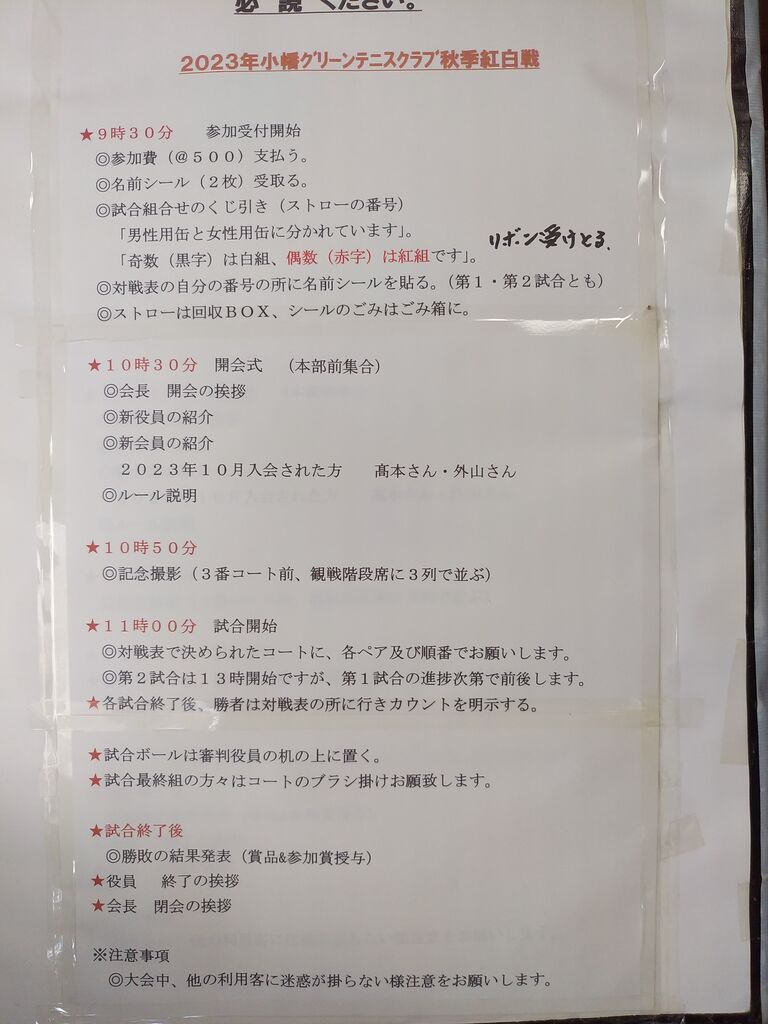 必 読 ください。
2023年小幡グリーンテニスクラブ秋季紅白戦
★9時30分　　参加受付開始
◎参加費（@500）支払う。
◎名前シール（2枚）受取る。
◎試合組合せのくじ引き（ストローの番号）
「男性用缶と女性用缶に分かれています」。
「奇数（黒字）は白組、偶数（赤字）は紅組です」。
リボン受けとる、
◎対戦表の自分の番号の所に名前シールを貼る。（第1・第2試合とも）
◎ストローは回収BOX、シールのごみはごみ箱に。
★10時30分　開会式　（本部前集合）
◎会長　開会の挨拶
◎新役員の紹介
◎新会員の紹介
2023年10月入会された方　　髙本さん・外山さん
◎ルール説明
★10時50分
◎記念撮影（3番コート前、観戦階段席に3列で並ぶ）
★11時00分　試合開始
◎対戦表で決められたコートに、各ペア及び順番でお願いします。
◎第2試合は13時開始ですが、第1試合の進捗次第で前後します。
★各試合終了後、勝者は対戦表の所に行きカウントを明示する。
★試合ボールは審判役員の机の上に置く。
★試合最終組の方々はコートのブラシ掛けお願致します。
★試合終了後
◎勝敗の結果発表（賞品&参加賞授与）
★役員　終了の挨拶
★会長　閉会の挨拶
※注意事項
◎大会中、他の利用客に迷惑が掛らない様注意をお願いします。